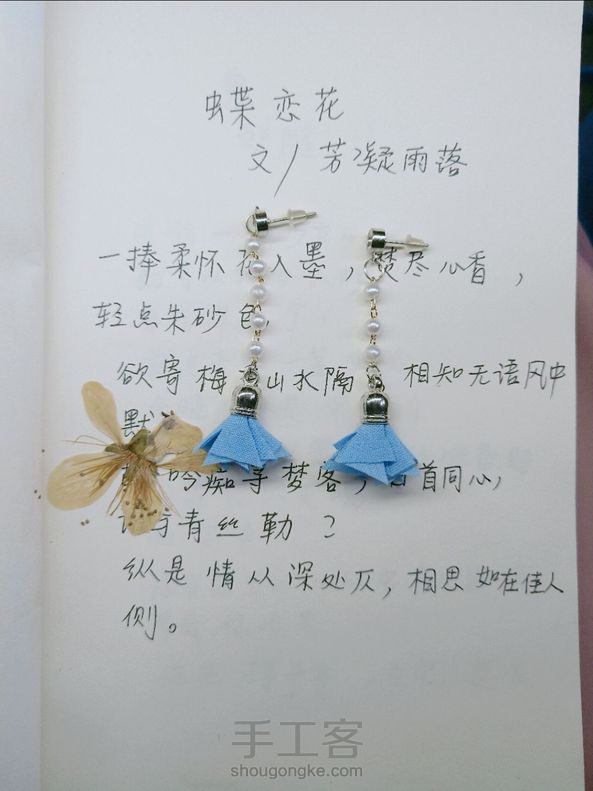 蝶恋花
文/芳凝雨落
一捧柔怀 入墨，焚尽心香，
轻点朱砂色
欲寄梅 山水隔 相知无语风中
默
吟痴寻梦客， 首同心
与青丝勒？
纵是情从深处仄，相思如在佳人
侧。
手工客
shougongke.com